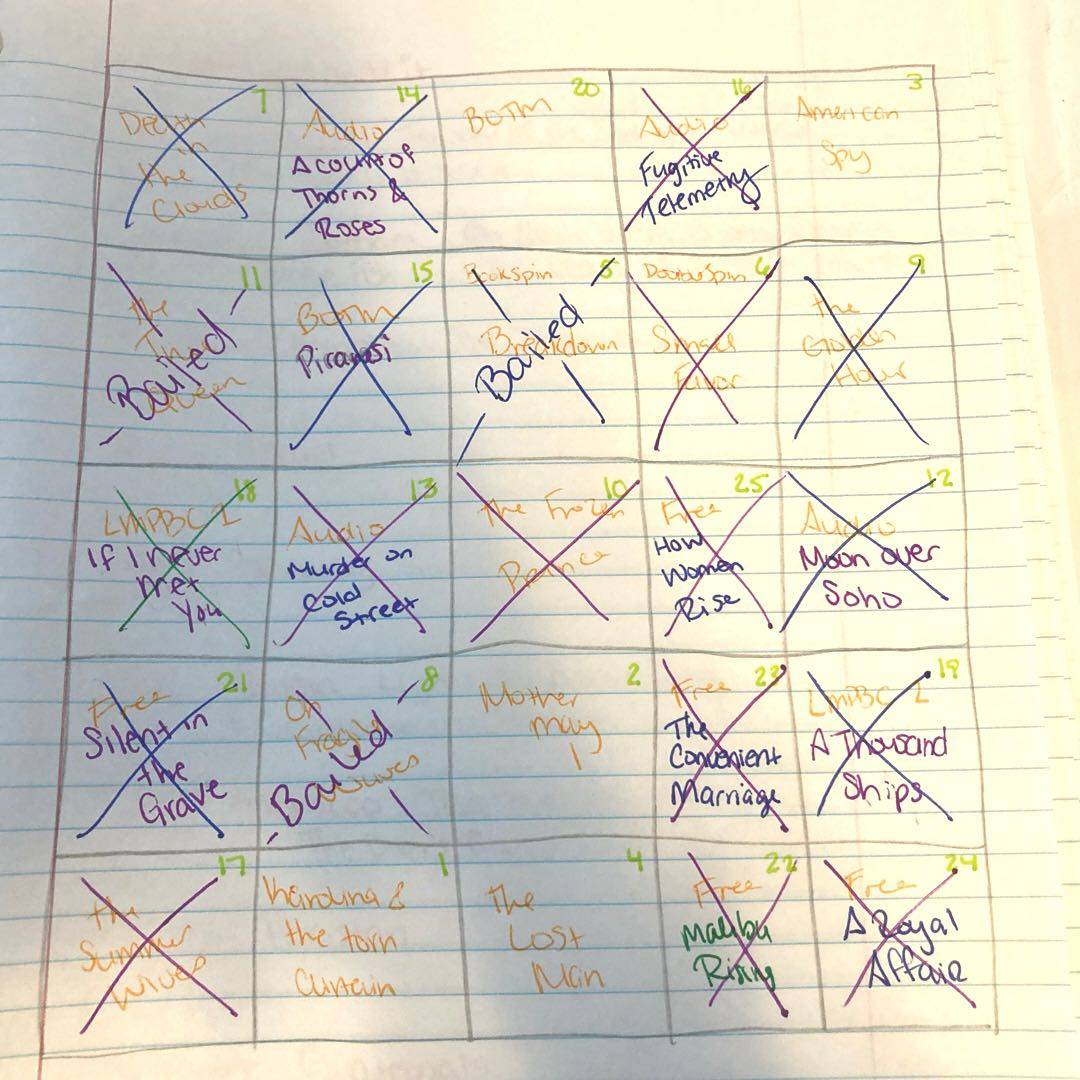 7
Death
in
the
Clouds
14
Audio
A court of
Thorns &
Roses
20
BOTM
16
Audio
Fugitive
Telemetry
3
American
Spy
11
the
Bailed
15
BOTM
Piranesi
BookSpin 5
Breakdown
Bailed
DoubleSpin 6
Small
Favor
9
the
Golden
Hour
18
LMPBC L
If I never
met
You
13
Audio
Murder on
Cold
Street
10
the Frozen
25
Free
How
Women
Rise
12
Audio
Moon over
Soho
21
Free
Silent in
the
Grave
8
On
Fragile
Waves
Bailed
2
Mother
may
I
23
Free
The
Convenient
Marriage
19
LMPBC L
A Thousand
Ships
17
the
Summer
Wives
1
Karolina &
the torn
Curtain
4
The
Lost
Man
22
Free
Malibu
Rising
24
Free
A Royal
Affair